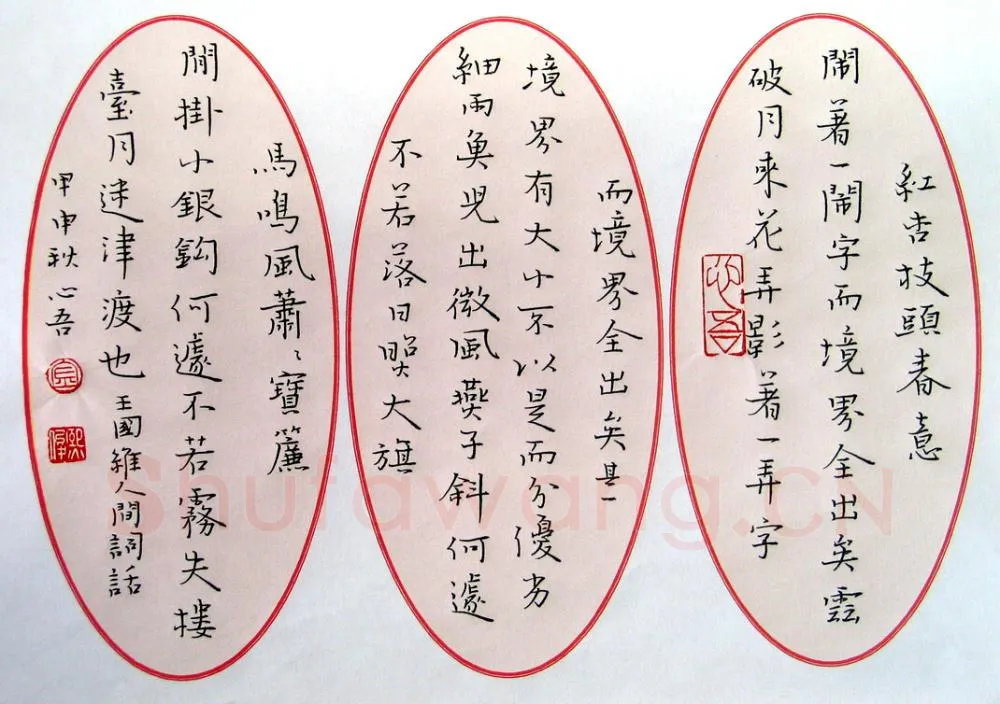 紅杏枝頭春意
鬧著一鬧字而境界全出矣雲
破月來花弄影著一弄字
心吾
而境界全出矣其一
境界有大小不以是而分優劣
細雨魚兒出微風燕子斜何遽
不若落日照大旗
馬鳴風蕭〻寶簾
間掛小銀鈎何遽不若霧失樓
臺月迷津渡也 王國維人間詞話
甲申秋心吾
Shufawang.CN